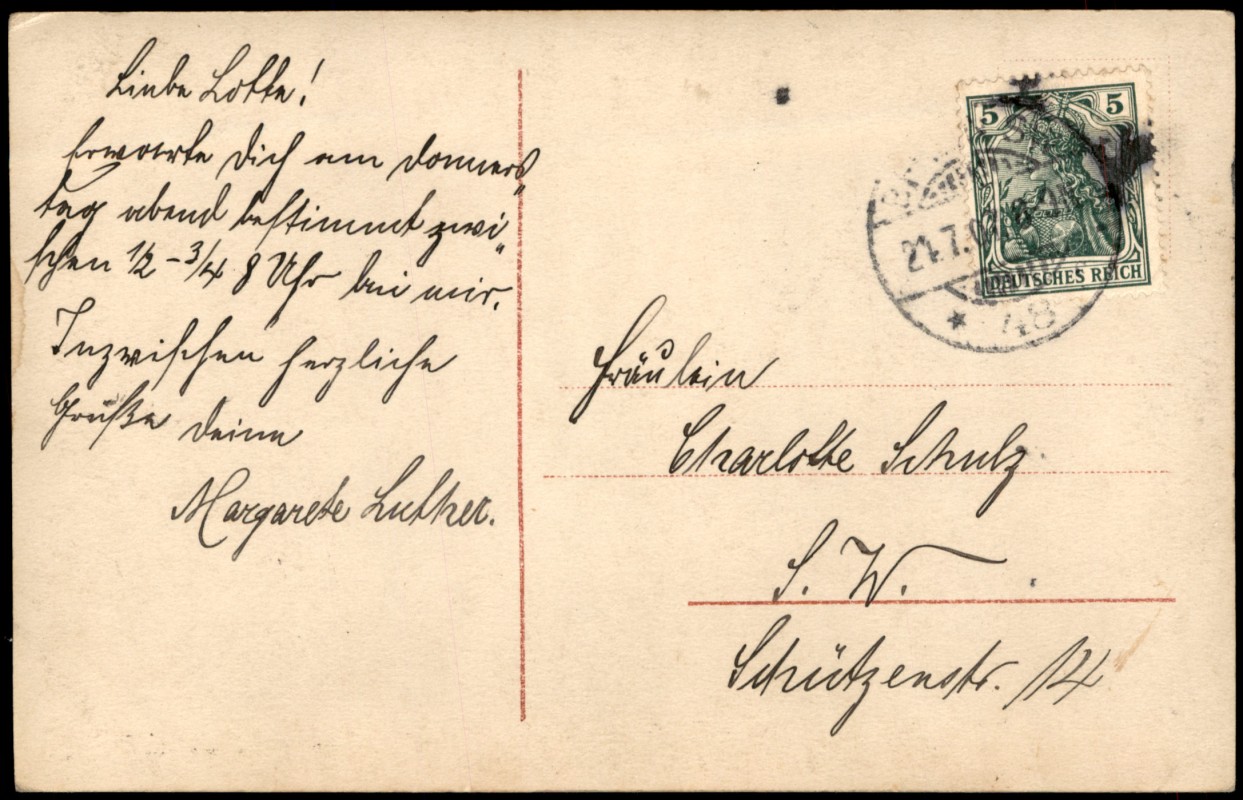 Liebe Lotte!
Erwarte Dich am Donners
tag abend bestimmt zwi
schen 1/2 - 3/4 8 Uhr bei mir.
Inzwischen herzliche
Grüße deine
Margarete Luther.
5 5
DEUTSCHES REICH
21.7.
* 48
Fräulein
Charlotte Schulz
S. W.
Schützenstr. 14